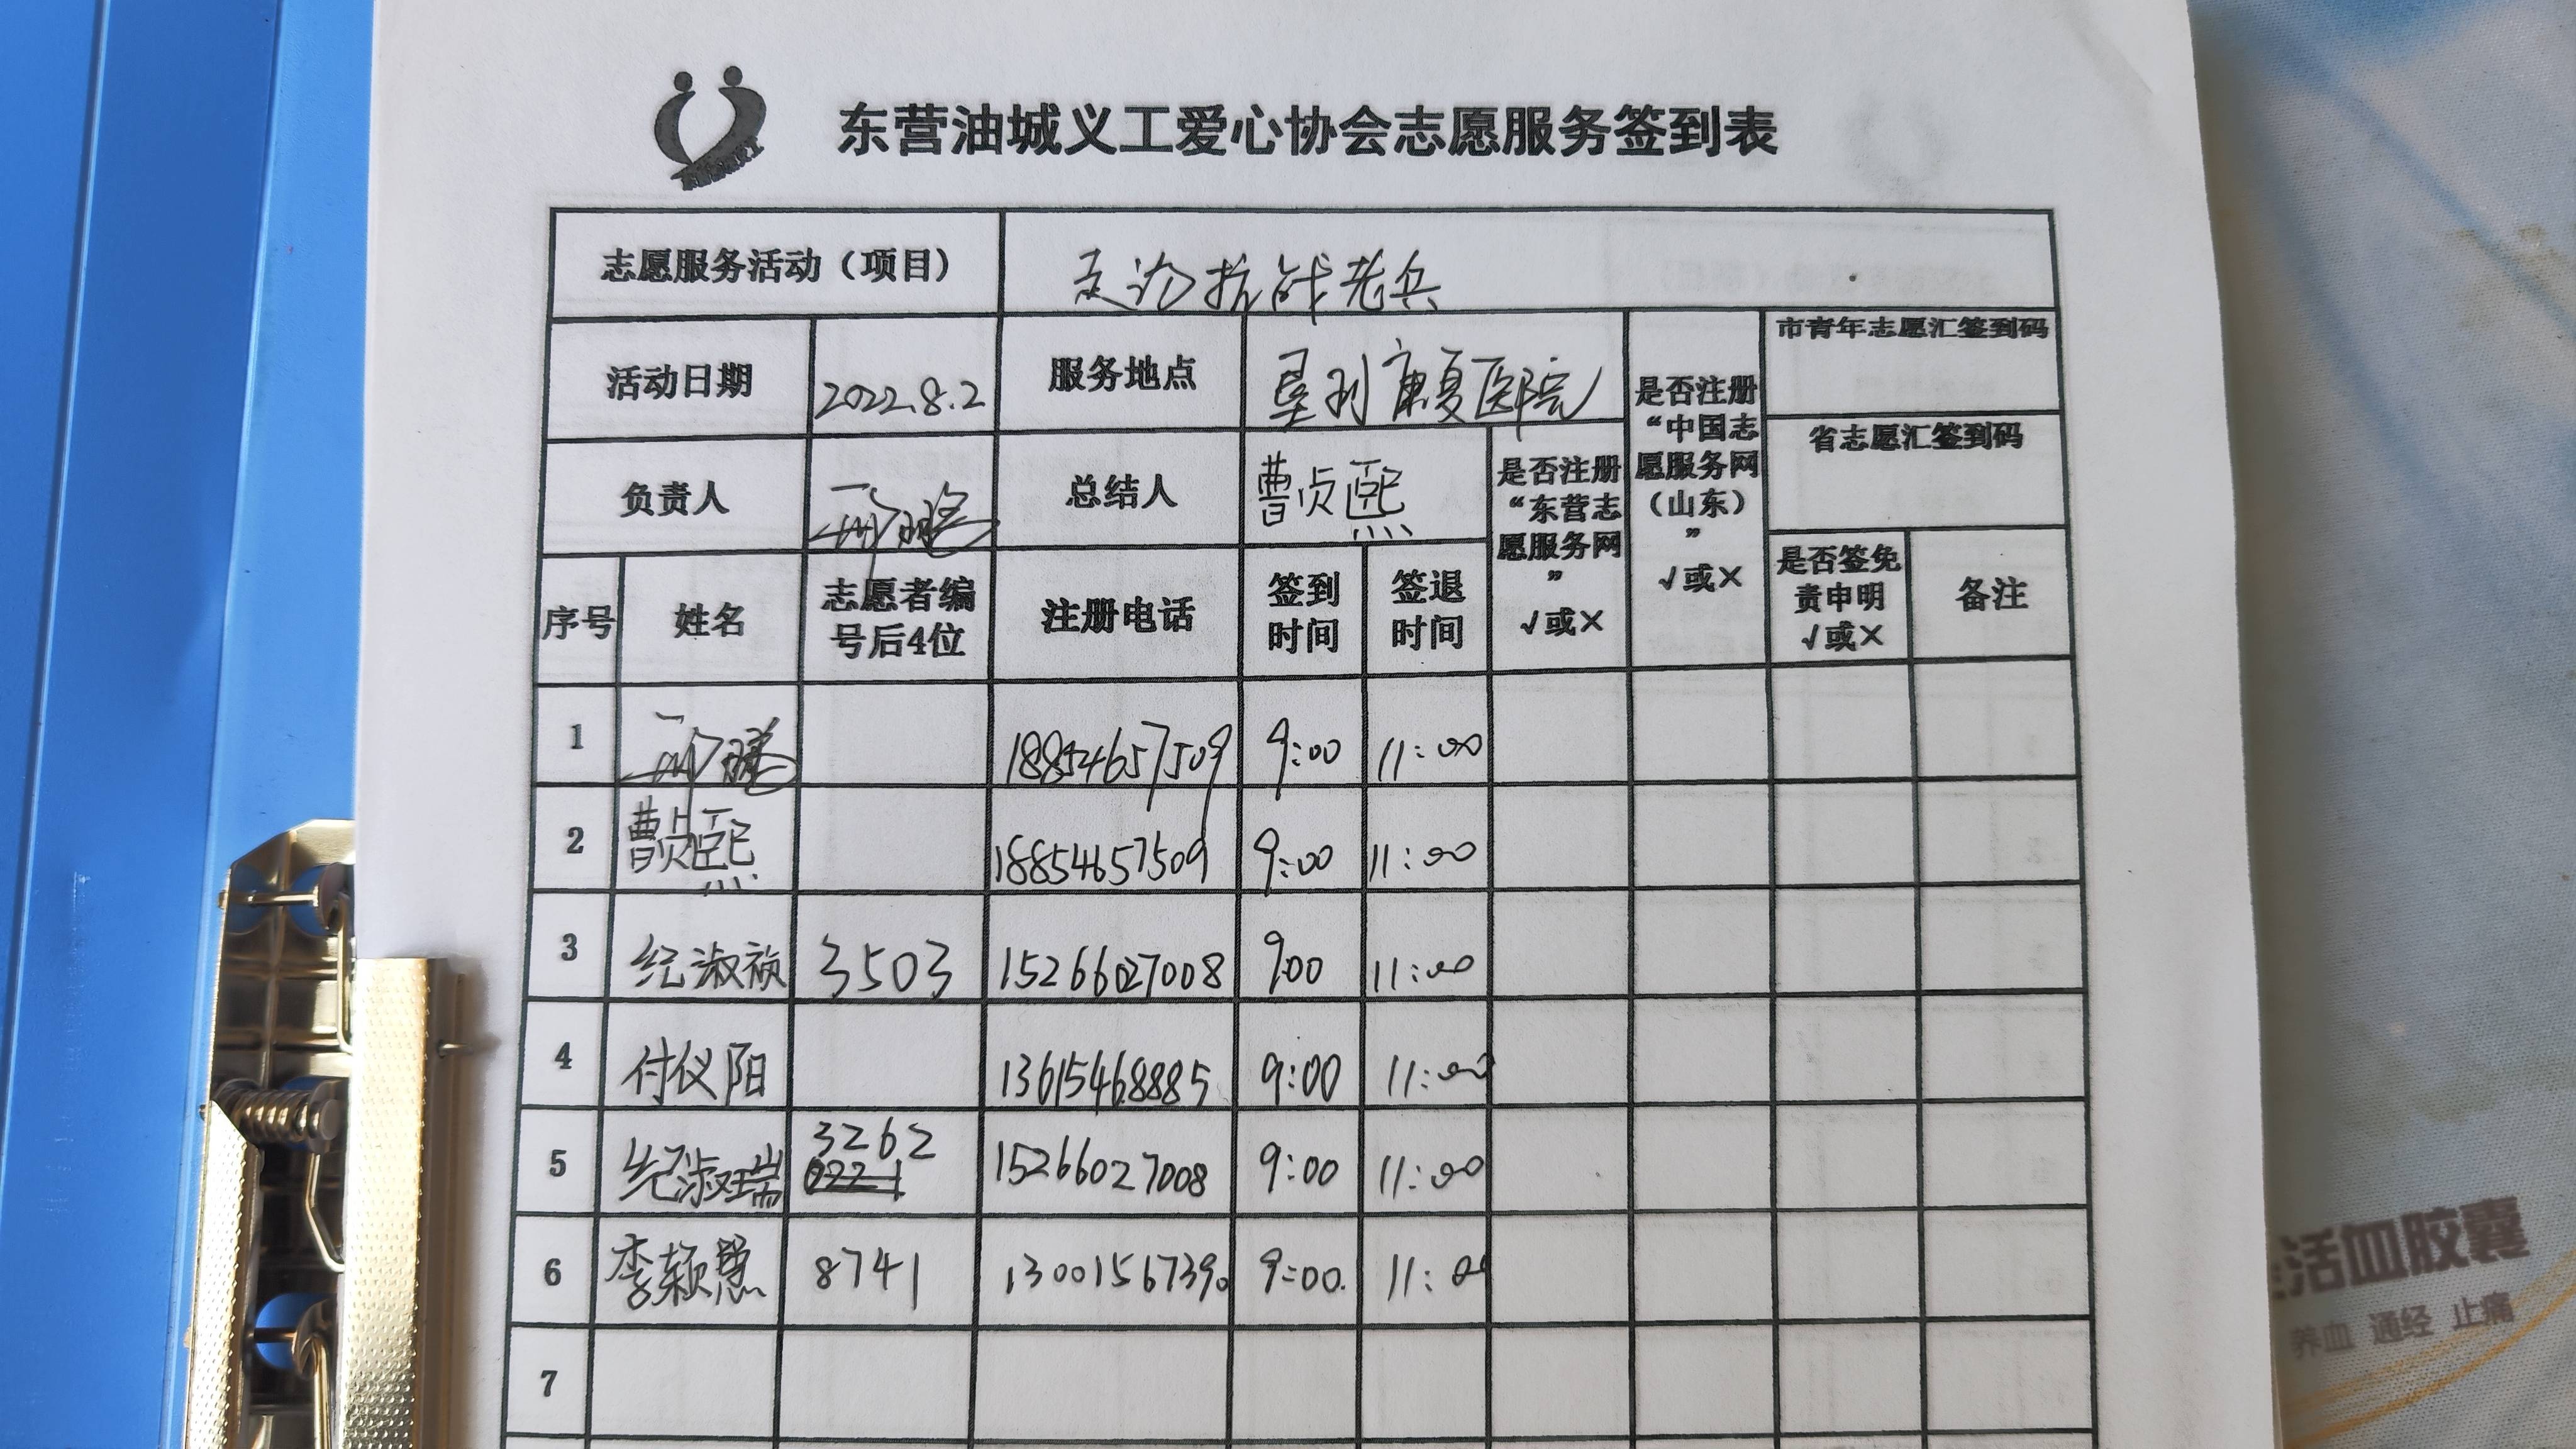 东营油城义工爱心协会志愿服务签到表
志愿服务活动（项目） 走访抗战老兵
活动日期 2022.8.2 服务地点 垦利康复医院
是否注册“中国志愿服务网（山东）”√或×
市青年志愿汇签到码
省志愿汇签到码
负责人 总结人 曹贞熙
是否注册“东营志愿服务网”√或×
序号 姓名 志愿者编号后4位 注册电话 签到时间 签退时间 是否签免责申明√或× 备注
1 18854657509 9:00 11:00
2 曹贞熙 18854657509 9:00 11:00
3 纪淑祯 3503 15266027008 9:00 11:00
4 付仪阳 13615468885 9:00 11:00
5 纪淑瑞 3262 15266027008 9:00 11:00
6 李颖慧 8741 13001567390 9:00 11:00
7
活血胶囊
养血 通经 止痛